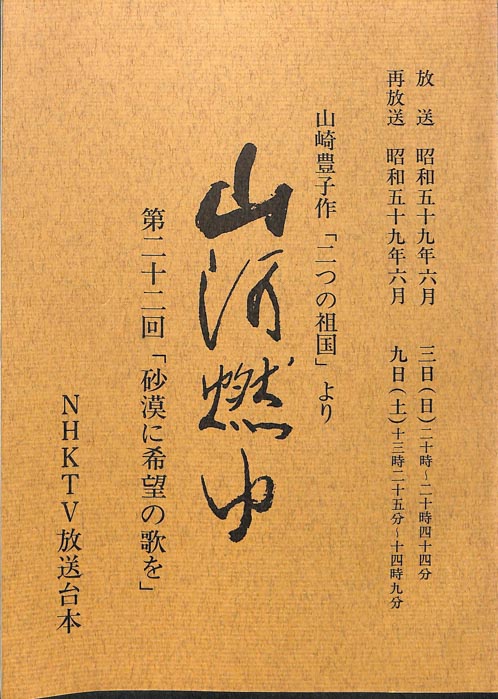 放　送　昭和五十九年六月　三日(日)二十時〜二十時四十四分
再放送　昭和五十九年六月　九日(土)十三時二十五分〜十四時九分
山崎豊子作「二つの祖国」より
山河燃ゆ
第二十二回「砂漠に希望の歌を」
NHKTV放送台本